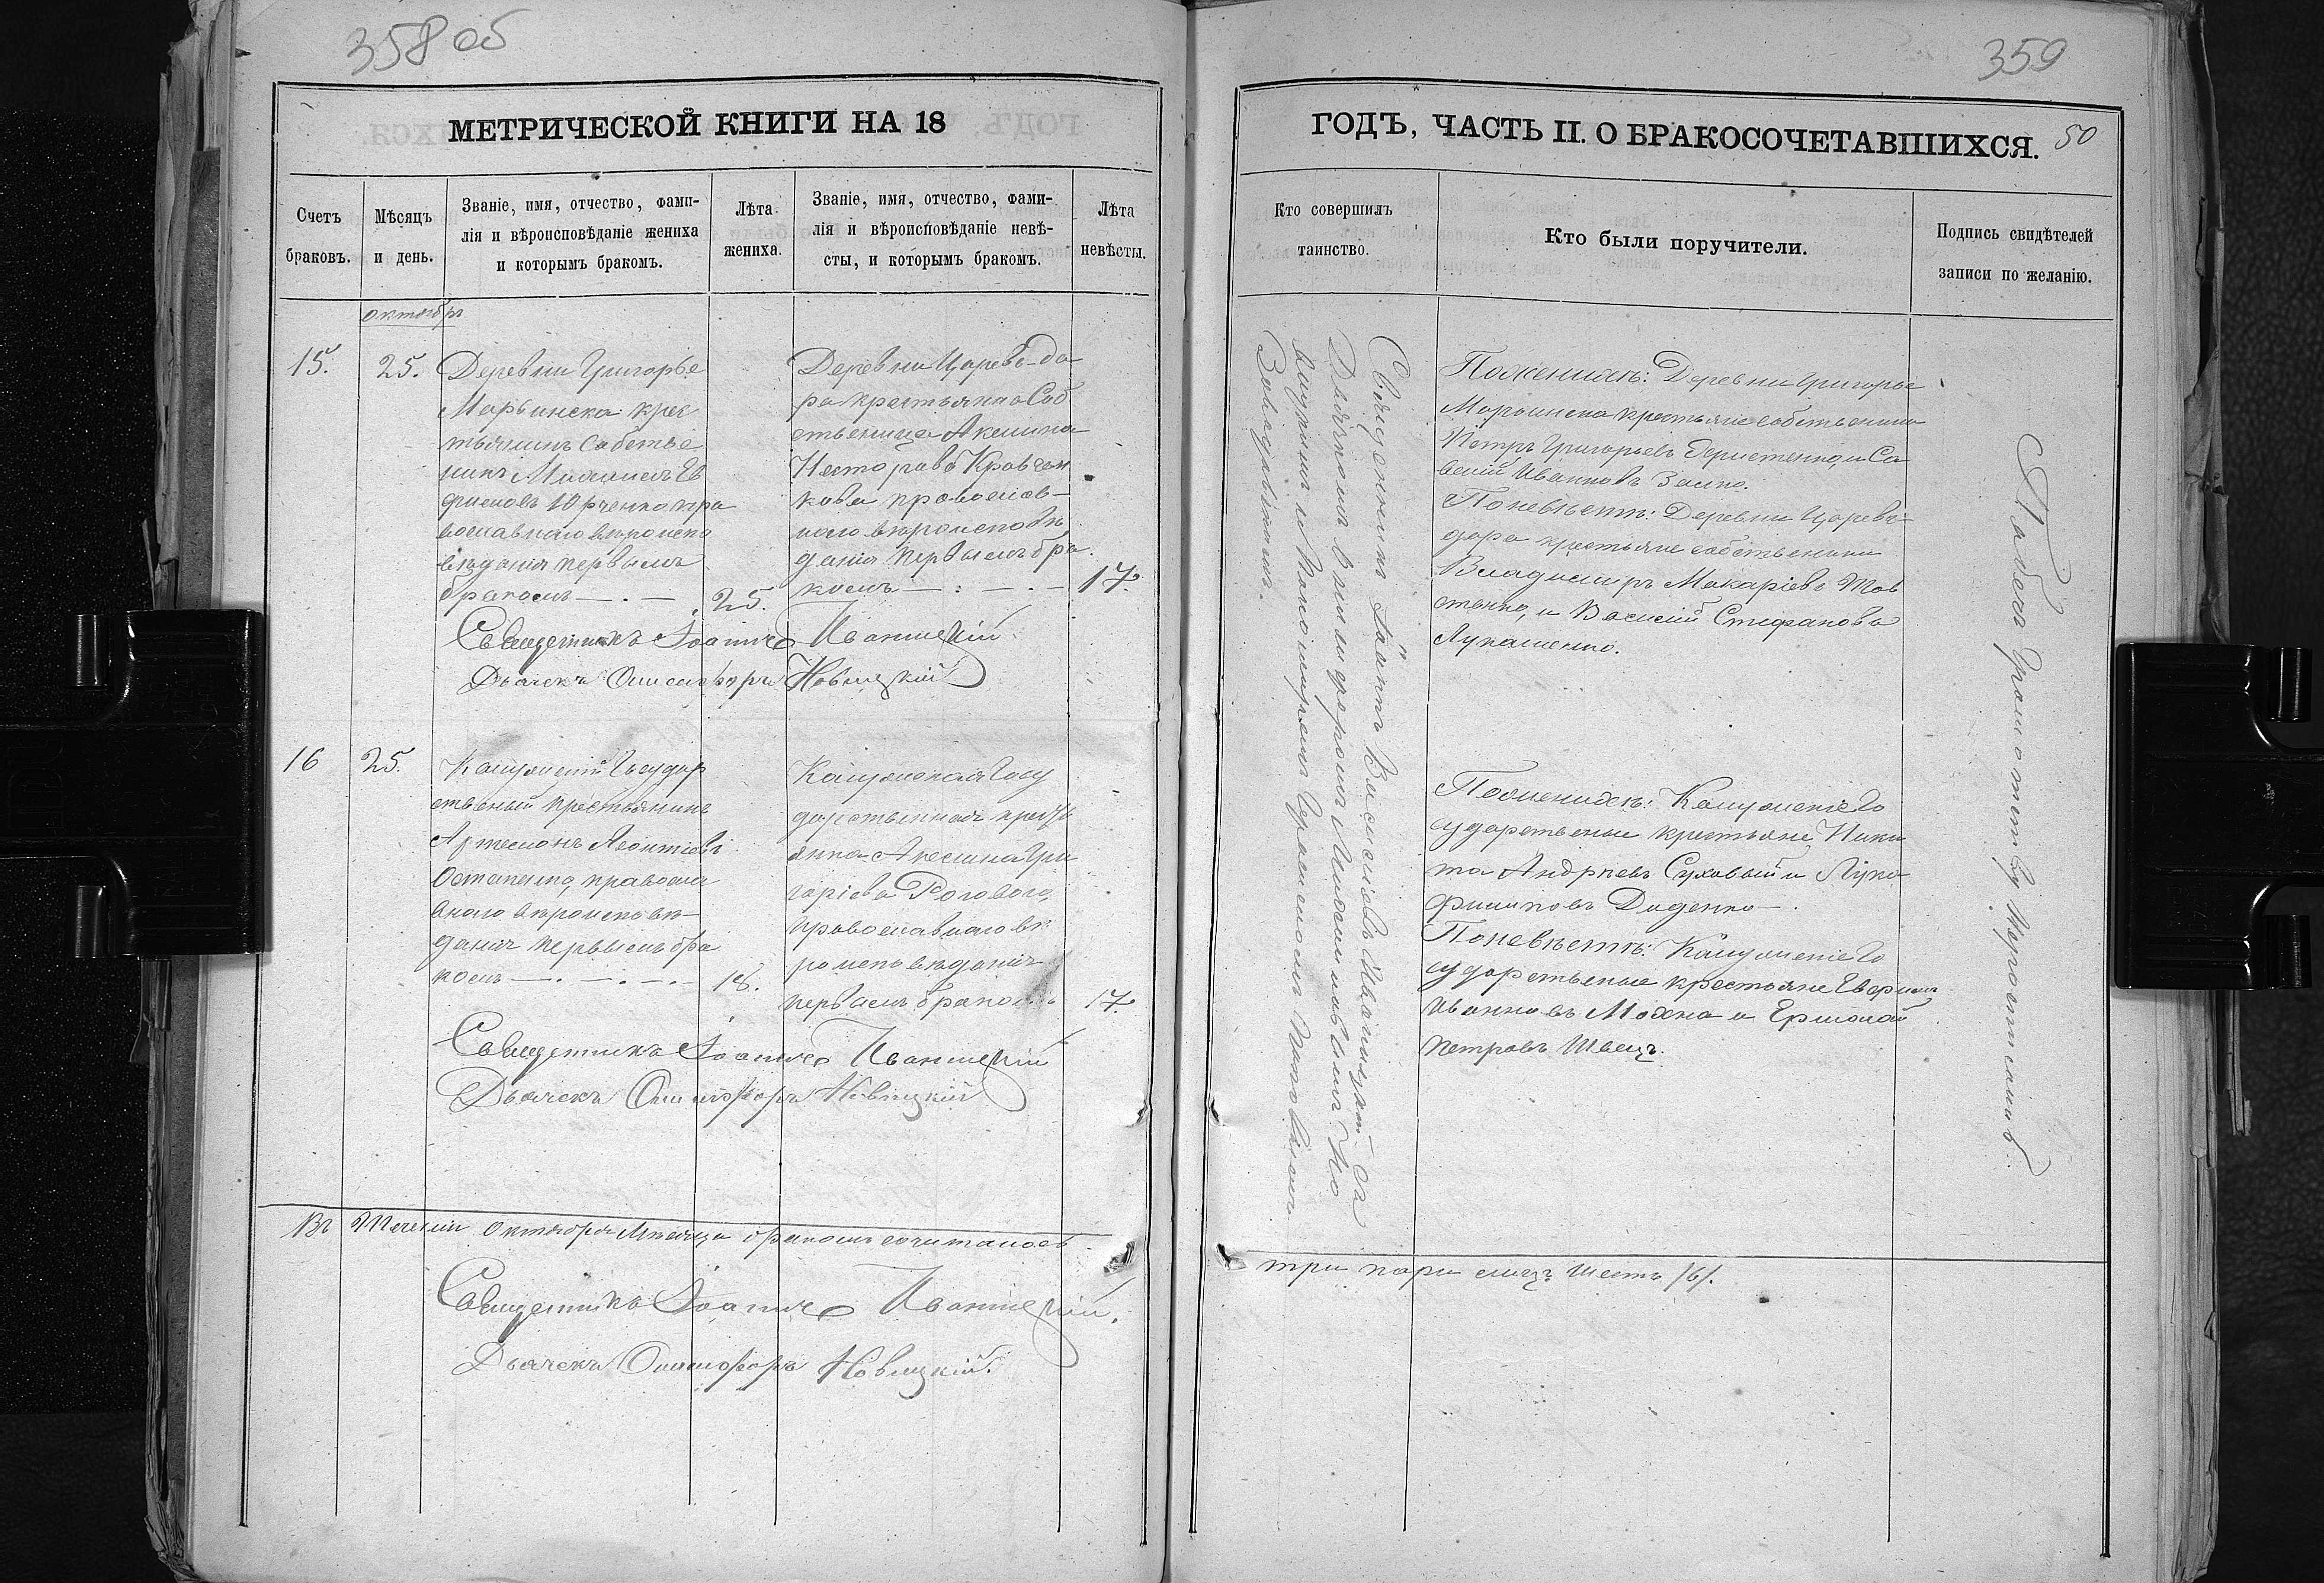 358 об
МЕТРИЧЕСКОЙ КНИГИ НА 18
Счетъ браковъ.
Мѣсяцъ и день.
Званіе, имя, отчество, фами-
лія и вѣроисповѣданіе жениха
и которымъ бракомъ.
Лѣта жениха.
Званіе, имя, отчество, фами-
лія и вѣроисповѣданіе невѣ-
сты, и которымъ бракомъ.
Лѣта невѣсты.
октябрь
15.
25.
Деревни Григорье
Марьинска крес
тьянинъ Собстве
никъ Михаилъ Ев
фимовъ Юрченко пра
вославнаго вѣроиспо
вѣданія первымъ
бракомъ
25.
Деревни Царева-да
ра крестьянка Соб
ственица Акилина
Несторова Кравчен
кова православ-
наго вѣроисповѣ
данія первымъ бра
комъ
17.
Священникъ Іоаннъ Иваницкій
Дьячекъ Онисифоръ Новицкій
16
25.
Государ
ственый крестьянинъ
Артемонъ Леонтіевъ
Остапенко, правосла
внаго вѣроисповѣ-
данія первымъ бра
комъ
18.
Госу
дарственная кресть
янка Акилина Гри
горіева Роговаго,
православнаго вѣ
роисповѣданія
первымъ бракомъ
17.
Священникъ Іоаннъ Иваницкій
Дьячекъ Онисифоръ Новицкій
Въ теченіи октября Мѣсяца бракомъ сочиталось
Священникъ Іоаннъ Иваницкій.
Дьячекъ Онисифоръ Новицкій.
359
ГОДЪ, ЧАСТЬ II. О БРАКОСОЧЕТАВШИХСЯ.
50
Кто совершилъ таинство.
Кто были поручители.
Подпись свидѣтелей записи по желанію.
Священникъ Іоаннъ Василіевъ Иваницкій съ
Дьячкомъ Онисифоромъ Но
вицкимъ и Пономаремъ
Пожениху: Деревни Григорье
Марьинска крестьяне собственики
Петръ Григорьевъ и Са
велій Ивановъ
Поневѣстѣ: Деревни Царева
дара крестьяне собственики
Владимиръ Макаріевъ Тов
стенко, и Василій Стефановъ
Лукашенко.
Поженихѣ: Го
сударственые крестьяне Ники
та Андреевъ Суховый и Лука
Филиповъ Диденко
Поневѣстѣ: Го
сударственые крестьяне
Ивановъ Махна и Ермолай
Петровъ Швецъ.
три пари лицъ шесть /6/.